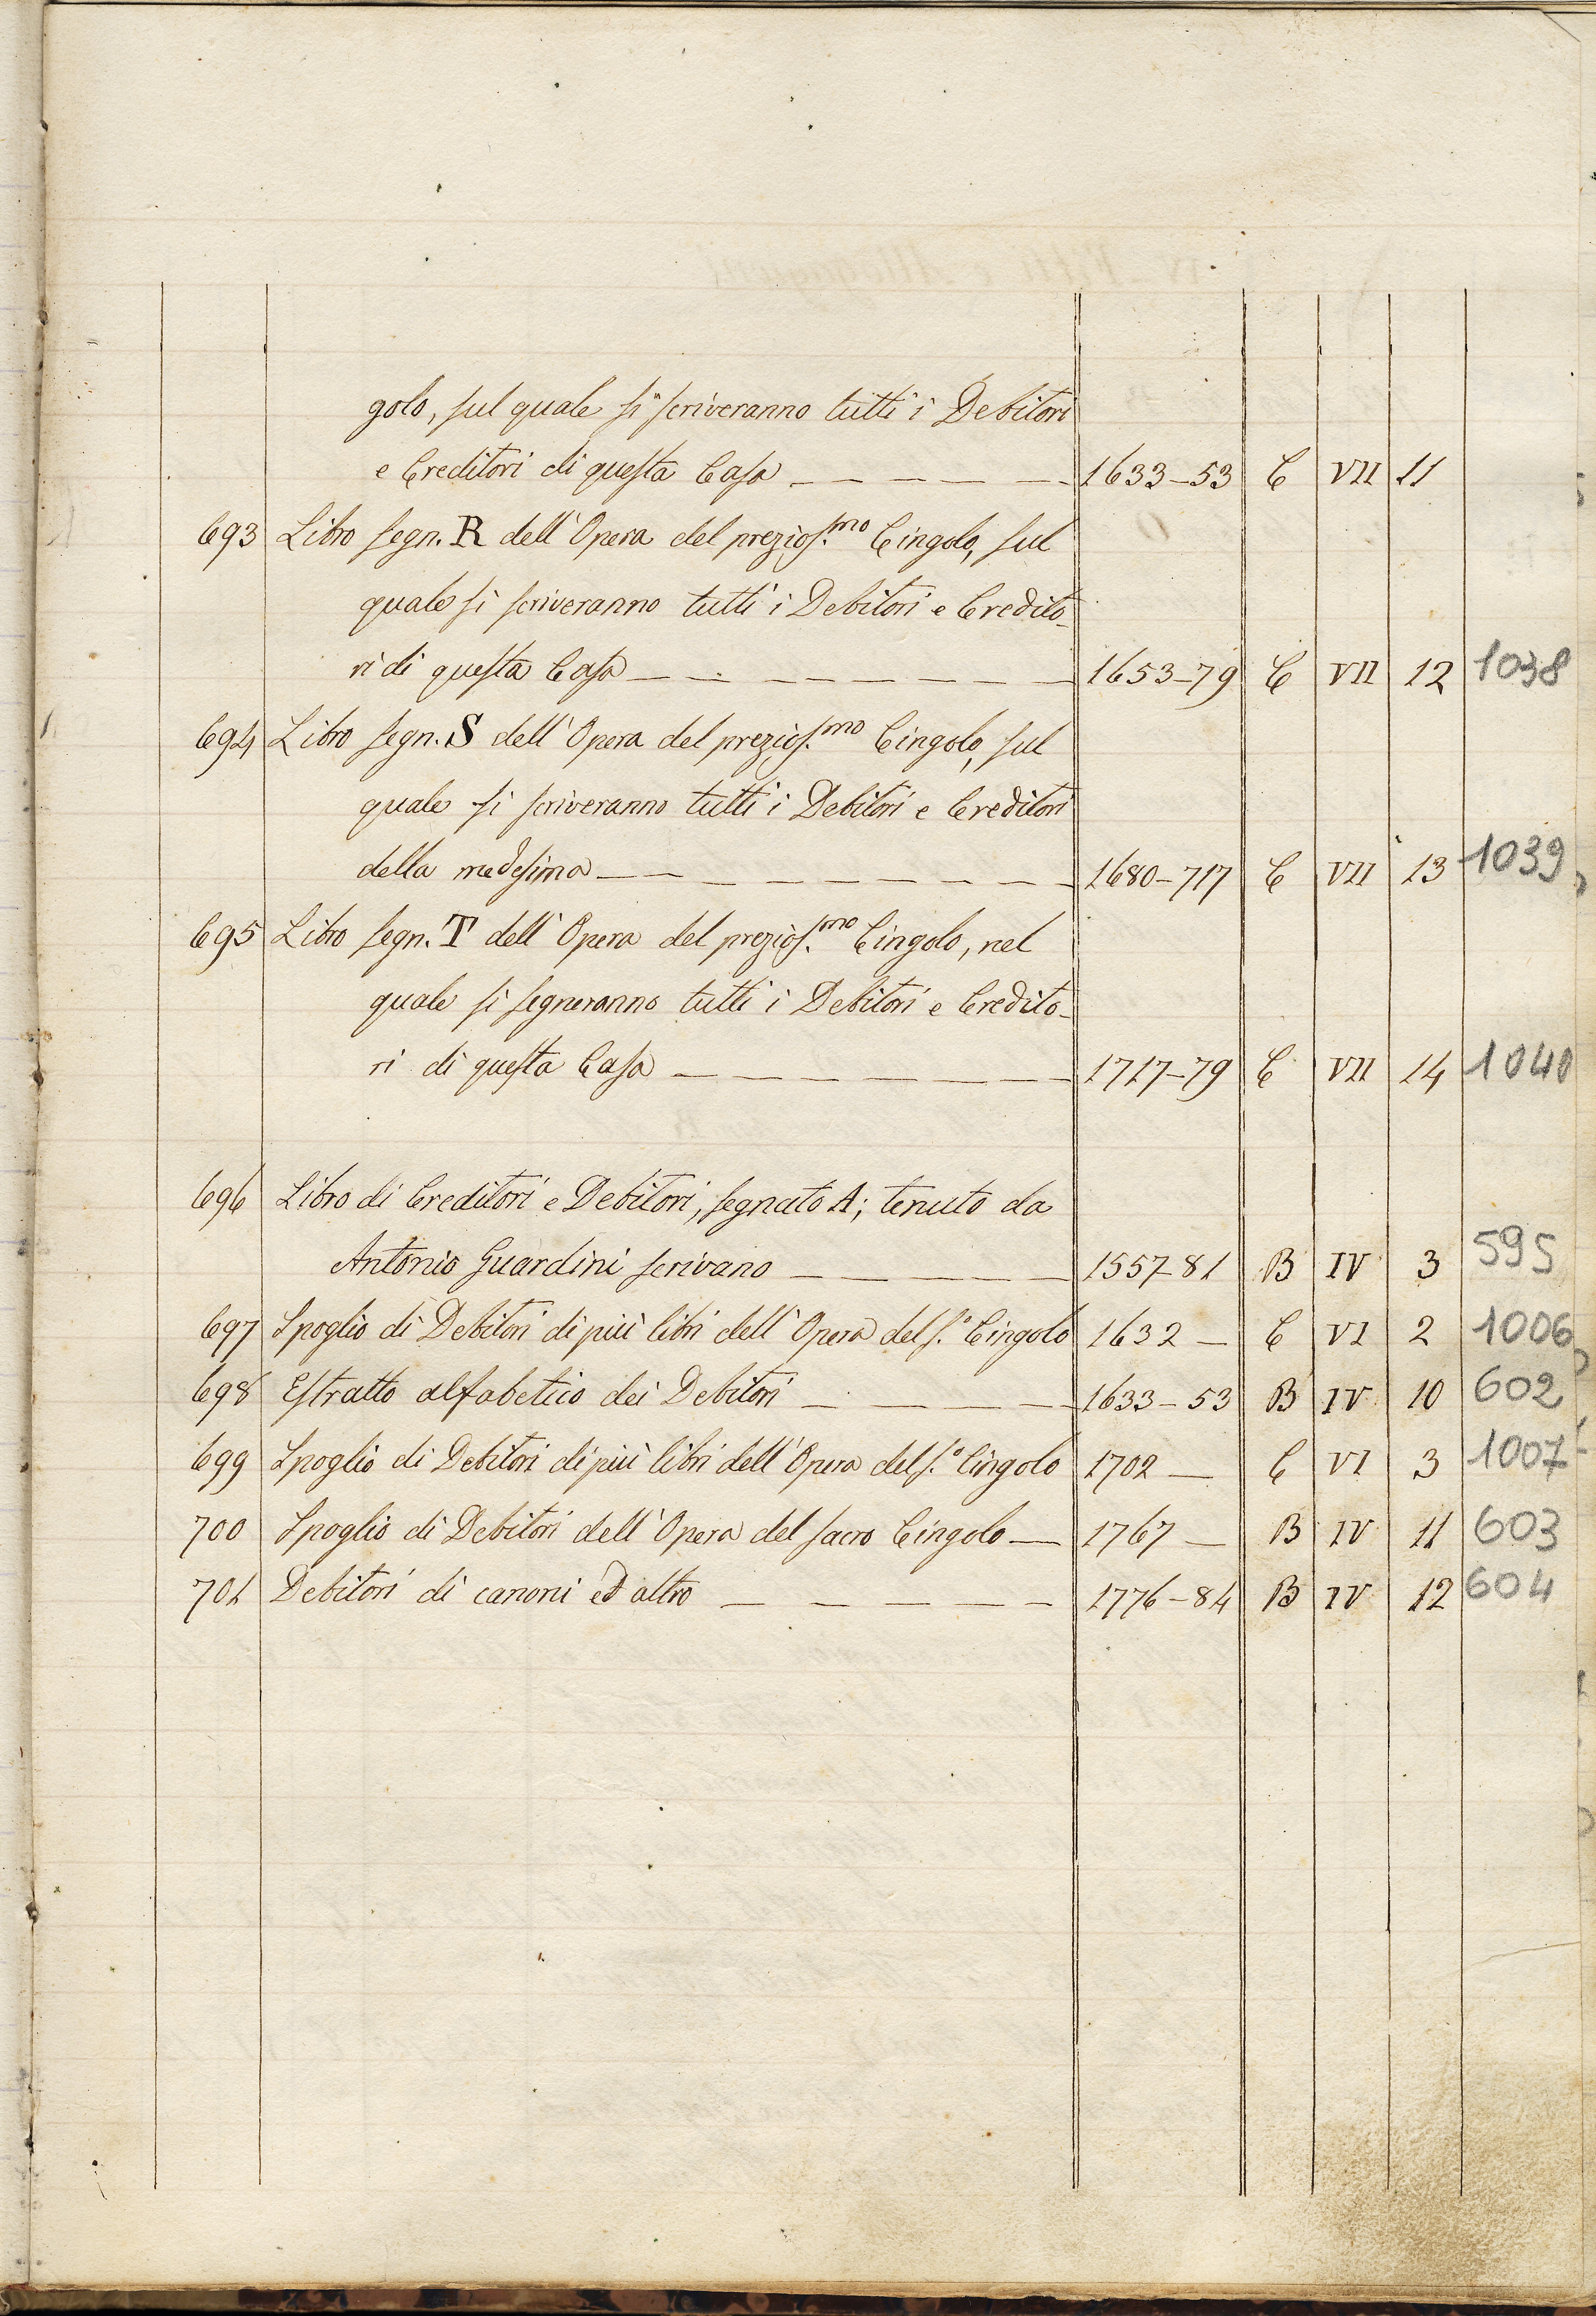 golo, sul quale si scriveranno tutti i Debitori
e Creditori di questa Casa — — — — — 1633-53 C VII 11
693 Libro segn. R dell'Opera del prezios.mo Cingolo, sul
quale si scriveranno tutti i Debitori e Credito-
ri di questa Casa — — — — — — — 1653-79 C VII 12 1038
694 Libro segn. S dell'Opera del prezios.mo Cingolo, sul
quale si scriveranno tutti i Debitori e Creditori
della medesima — — — — — — — — 1680-717 C VII 13 1039
695 Libro segn. T dell'Opera del prezios.mo Cingolo, nel
quale si segneranno tutti i Debitori e Credito-
ri di questa Casa — — — — — — — 1717-79 C VII 14 1040
696 Libro di Creditori e Debitori, segnato A; tenuto da
Antonio Guardini scrivano — — — — — 1557-81 B IV 3 595
697 Spoglio di Debitori di più libri dell'Opera del S.º Cingolo 1632 — C VI 2 1006
698 Estratto alfabetico dei Debitori — — — — — 1633-53 B IV 10 602
699 Spoglio di Debitori di più libri dell'Opera del S.º Cingolo 1702 — C VI 3 1007
700 Spoglio di Debitori dell'Opera del sacro Cingolo — 1767 — B IV 11 603
701 Debitori di canoni ed altro — — — — — 1776-84 B IV 12 604